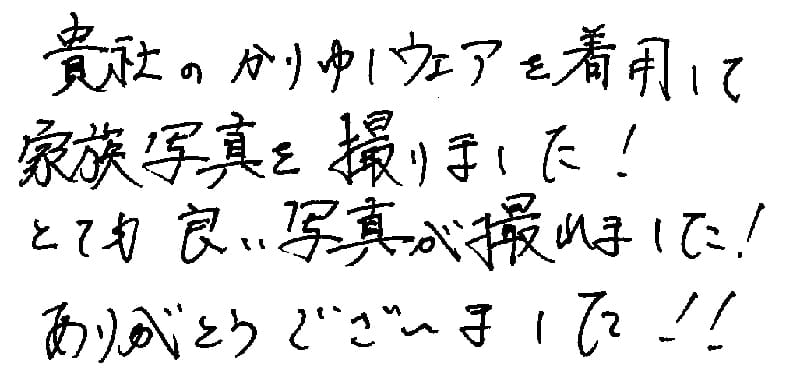 貴社のかりゆしウェアを着用して
家族写真を撮りました!
とても良い写真が撮れました!
ありがとうございました!!